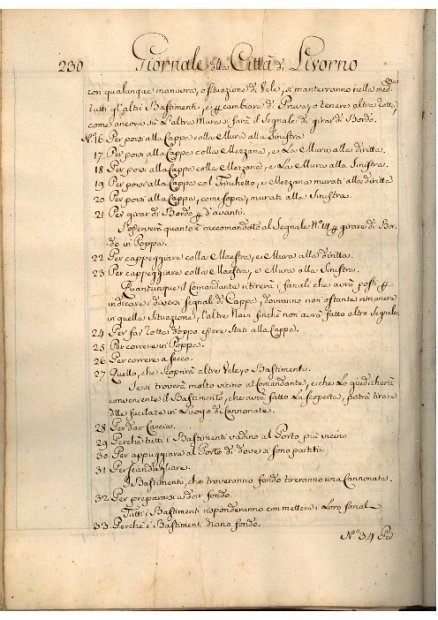 230 Giornale della Città di Livorno
con qualunque manuvra, o situazione di Vele, si manterranno nella med:ma
tutti gl'altri Bastimenti, e per cambiare di Prua, o tenere altra rotta,
come ancora su l'altra Mura si farà il Segnale di girar di Bordo.
N.° 16 Per porsi alla Cappa colla Mura alla Sinistra
17 Per porsi alla Cappa colla Mezzana, e La Mura alla diritta.
18 Per porsi alla Cappa colla Mezzana, e La Mura alla Sinistra.
19 Per porsi alla Cappa col Trinchetto, e Mezzana murati alla diritta
20 Per porsi alla Cappa, come sopra, murati alla Sinistra.
21 Per girar di Bordo per d'avanti.
S'osserverà quanto è raccomandato al Segnale N.° 14 per girare di Bor-
do in Poppa.
22 Per cappeggiare colla Maestra, e Mura alla diritta.
23 Per cappeggiare colla Maestra, e Mura alla Sinistra.
Quantunque il Comandante ritirerà i fanali che avrà posti per
indicare i diversi segnali di Cappa, dovranno non ostante rimanere
in quella Situazione, l'altre Navi finchè non avrà fatto altro Segnale
24 Per far rotta doppo essere stati alla Cappa.
25 Per correre in Poppa.
26 Per correre a secco.
27 Quello, che scoprirà altre Vele, o Bastimento.
Se si troverà molto vicino al Comandante, e che Lo giudicherà
conveniente il Bastimento, che avrà fatto La scoperta, potrà tirare
delle fucilate in Luogo di Cannonate.
28 Per dar Caccia.
29 Perchè tutti i Bastimenti vadino al Porto più vicino
30 Per appuggiare al Porto di dove si sono partiti.
31 Per scandagliare.
I Bastimenti, che troveranno fondo tireranno una Cannonata.
32 Per prepararsi a dar fondo.
Tutti i Bastimenti risponderanno con mettere i Loro fanali
33 Perchè i Bastimenti diano fondo.
N.° 34 Per